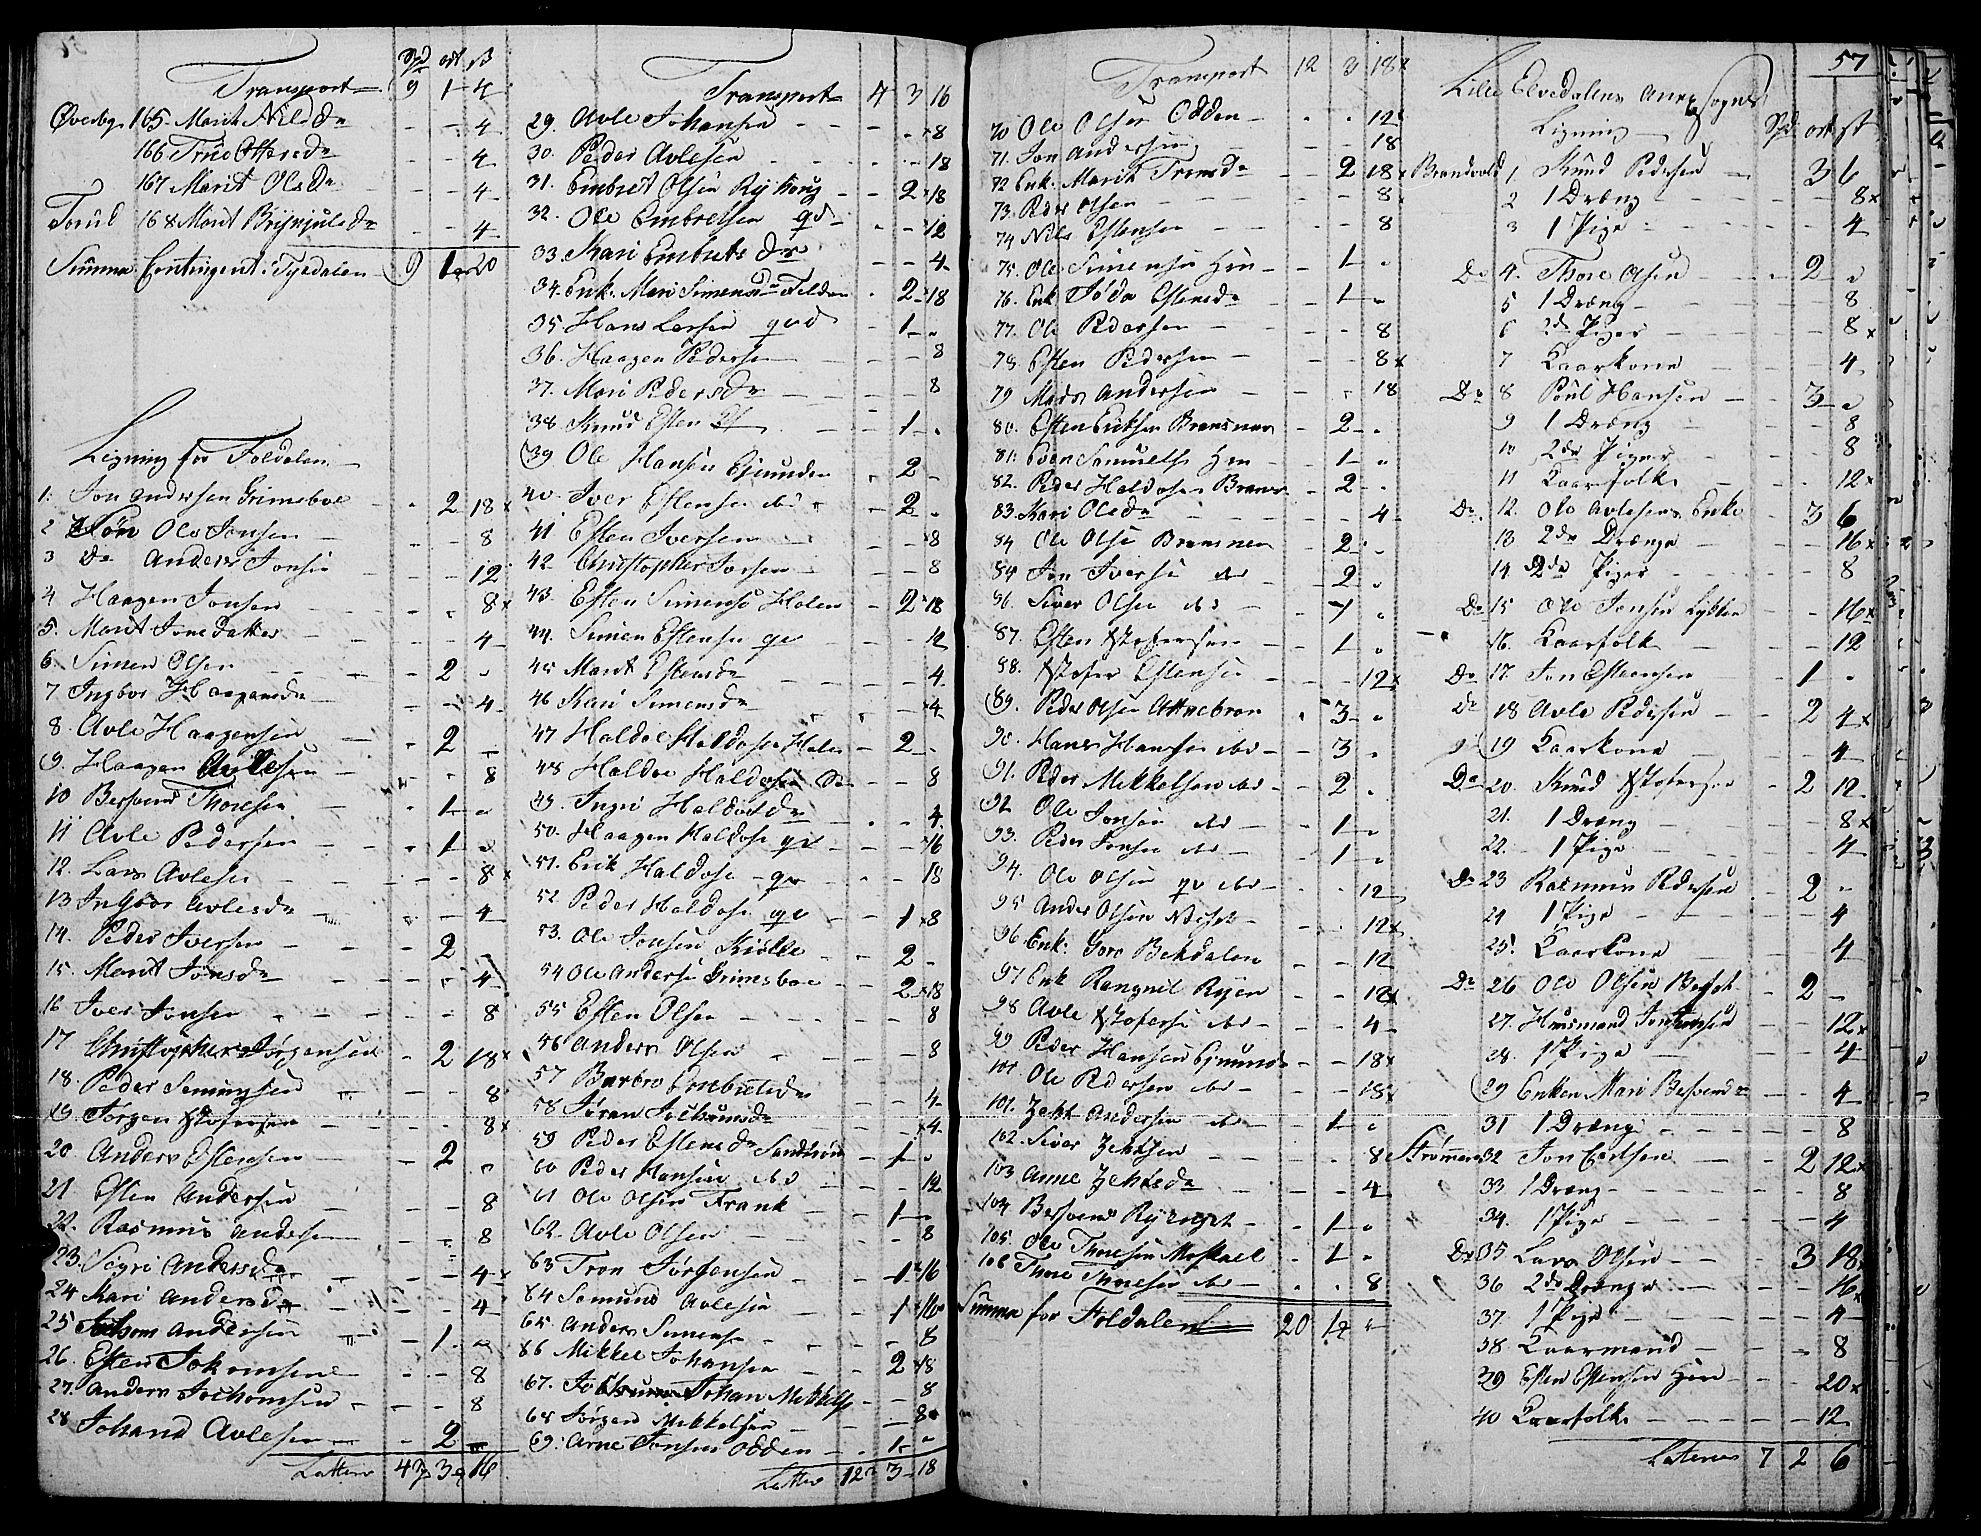 Spd ort ß
Transport 9 1 4
Øverbye 165 Marit Nilsd. 4
166 Trud Ottersd. 4
167 Marit Olsd. 4
168 Marit Brynjulsd. 4
Summa Contingent Tyldalen 9 1 20
Ligning for Foldalen
1. Jon Andersen Grimsboe 2 18x
2 Søn Ole Jonsen 8
3 Do Anders Jonsen 12
4 Haagen Jonsen 8x
5. Marit Jons Datter 4
6 Simen Olsen 2
7 Ingbor Haagensd. 4
8. Avle Haagensen 2
9. Haagen Avlesen 8
10 Bersvend Thoresen 1
11 Avle Pedersen 1
12. Lars Avlesen 8x
13 Ingbor Avlesd. 4
14. Peder Iversen 2
15. Marit Jonsd. 4
16 Iver Jonsen 8
17 Christopher Jørgensen 2 18x
18. Peder Simensen 8
19. Jørgen Xstofersen 8x
20 Anders Estensen 2
21 Esten Andersen 8
22. Rasmus Andersen 8
23. Sigri Andersd. 4x
24 Kari Andersd. 4
25 Jochom Andersen 1
26. Esten Jochomsen 8
27. Anders Jochomsen 8
28 Johans Avlesen 2
Latter 4 3 16
Transport 4 3 16
29. Avle Johansen 8
30. Peder Avlesen 18
31. Embret Olsen Ryhaug 2 18
32. Ole Embretsen 12
33. Kari Embretsd. 4
34. Enk. Mari Simensd. 2 18
35 Hans Larsen 1
36. Haagen Pedersen 8
37. Mari Pedersd. 8
38. Knud Esten 1
39 Ole Hansen Gjeunden 2
40. Iver Estensen 2
41 Esten Iversen 8
42 Christopher Iversen 8
43. Esten Simensen Holen 2 18
44. Simen Estensen 12
45 Marit Estensd. 4
46 Kari Simensd. 4
47 Haldoe Haldosen Holen 2
48 Haldoe Haldosen Do 8
49. Ingri Haldosd. 4
50. Haagen Haldosen 16
51. Erik Haldosen 18
52 Peder Haldosen 1 8
53. Ole Jonsen Kiølle 2
54 Ole Andersen Grimsboe 2 18
55 Esten Olsen 8
56 Anders Olsen 8
57 Barbro Embretsd. 4
58 Jøran Jochumsd. 4
59 Peder Estensd. 1
60 Peder Hansen 12
61 Ole Olsen Frank 1
62. Avle Olsen 8
63 Tron Jørgensen 1 16
64 Somund Avlesen 1 16
65 Anders Simensen 8
66 Mikkel Johansen 2 18
67. Johan Mikkelsen 8
68 Jørgen Mikkelsen 8
69. Arne Jonsen Odden 1
Latter 12 3 18
Transport 12 3 18
70 Ole Olsen Odden 12
71. Jon Andersen 18
72 Enk. Marit Tronsd. 2 18x
73. Peder Olsen 8
74 Nils Estensen 8
75. Ole Simensen 1
76. Enk Estensd. 1
77. Ole Pedersen 8
78. Esten Pedersen 8x
79 Mads Andersen 18
80. Esten Eriksen Brænnen 2
81. Even Samuelsen 1
82. Peder Haldosen 2
83. Kari Olsd. 4
84 Ole Olsen Brænnen 2
85 Jon Iversen 2
86. Siver Olsen 1
87. Esten Xstofersen 1
88. Xstofer Estensen 12x
89. Peder Olsen Attnebroe 3
90. Hans Hansen 3
91. Peder Mikkelsen 2
92 Ole Jonsen 1
93. Peder Jonsen 1
94. Ole Olsen 12
95 Anders Olsen 12x
96. Enk. Goro Bekdalen 12
97 Enk Rangnil Ryen 12x
98 Avle Xstofersen 4
99 Peder Hansen Gjeunden 18x
100. Ole Pedersen 18x
101. Pedersen 1
102. Siver 8
103 Anne 4
104 Bersvend 1
105. Ole Thoresen Moskael 1
106 Thore Thoresen 8
Summa for Foldalen 20 1 4
57
Lille Elvedalens Anex Sogns
Ligning Spd ort ß
Brandvold 1 Knud Pedersen 3 6
2 1 Dræng 8x
3 1 Pige 4
Do 4. Thore Olsen 2
5 1 Dræng 8
6 2de Piger 8x
7 Kaarkone 4
Do 8 Poul Hansen 3
9 1 Dræng 8
10 2de Piger 8
11 Kaarfolk 12x
Do 12. Ole Avlesens Enke 3 6
13 2de Drænge 16x
14 2de Piger 8
Do 15 Ole Jonsen Løkken 16x
16. Kaarfolk 12
Do 17. Jon Estensen 1
Do 18 Avle Pedersen 2 4x
19 Kaarkone 4
Do 20. Knud Xstofersen 2 12
21. 1 Dræng 8x
22. 1 Pige 4
Do 23 Rasmus Pedersen 2
24 1 Pige 4
25. Kaarkone 4
Do 26 Ole Olsen 2
27. Huusmand 12x
28. 1 Pige 4
29 Enken Mari Bersvendd. 4
31 1 Dræng 8
Strømmen 32 Jon Carlsen 2 12x
33 1 Dræng 8
34. 1 Pige 4
Do 35 Lars Olsen 3 18x
36 2de Drænge 16x
37. 1 Pige 4
38 Kaarmand 8
39 Esten Estensen 20x
40 Kaarfolk 12
Lateris 7 2 6